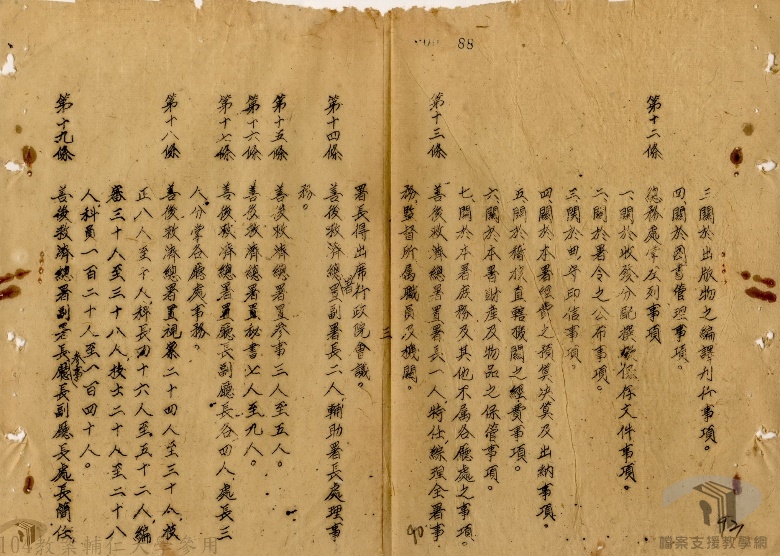 88
三、關於出版物之編譯刊行事項。
四、關於圖書管理事項。
第十二條
總務處掌左列事項
一、關於收發分配撰擬保存文件事項。
二、關於署令之公布事項。
三、關於典守印信事項。
四、關於本署經費之預算決算及出納事項。
五、關於稽核直轄機關之經費事項。
六、關於本署財產及物品之保管事項。
七、關於本署庶務及其他不屬各廳處之事項。
第十三條
善後救濟總署置署長一人特任綜理全署事
務監督所屬職員及機關。
三
署長得出席行政院會議。
第十四條
善後救濟總署置副署長二人輔助署長處理事
務。
第十五條
善後救濟總署置參事三人至五人。
第十六條
善後救濟總署置秘書七人至九人。
第十七條
善後救濟總署置廳長副廳長各四人處長三
人分掌各廳處事務。
第十八條
善後救濟總署置視察二十四人至三十人技
正八人至十人科長四十六人至五十二人編
審三十人至三十八人技士二十人至二十八
人科員一百二十人至一百四十人。
第十九條
善後救濟總署副署長參事廳長副廳長處長簡任
90
檔案支援教學網
104教案輔仁大學參用